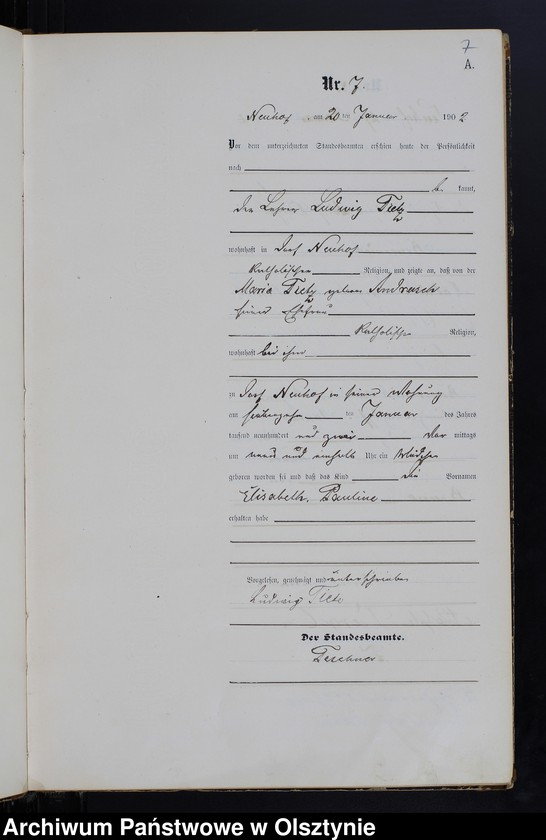 7
A.
Nr. 7.
Neuhof, am 20 ten Januar 1902
Vor dem unterzeichneten Standesbeamten erschien heute der Persönlichkeit
nach
be kannt,
der Lehrer Ludwig Tietz
wohnhaft in Dorf Neuhof
katholischer Religion, und zeigte an, daß von der
Maria Tietz geborene Andrasch
seiner Ehefrau
katholischer Religion,
wohnhaft bei ihm
zu Dorf Neuhof in seiner Wohnung
am ten Januar des Jahres
tausend neunhundert und zwei Vor mittags
um neun und einhalb Uhr ein Mädchen
geboren worden sei und daß das Kind die Vornamen
Elisabeth, Pauline
erhalten habe
Vorgelesen, genehmigt und unterschrieben
Ludwig Tietz
Der Standesbeamte.
Teschner
Archiwum Państwowe w Olsztynie